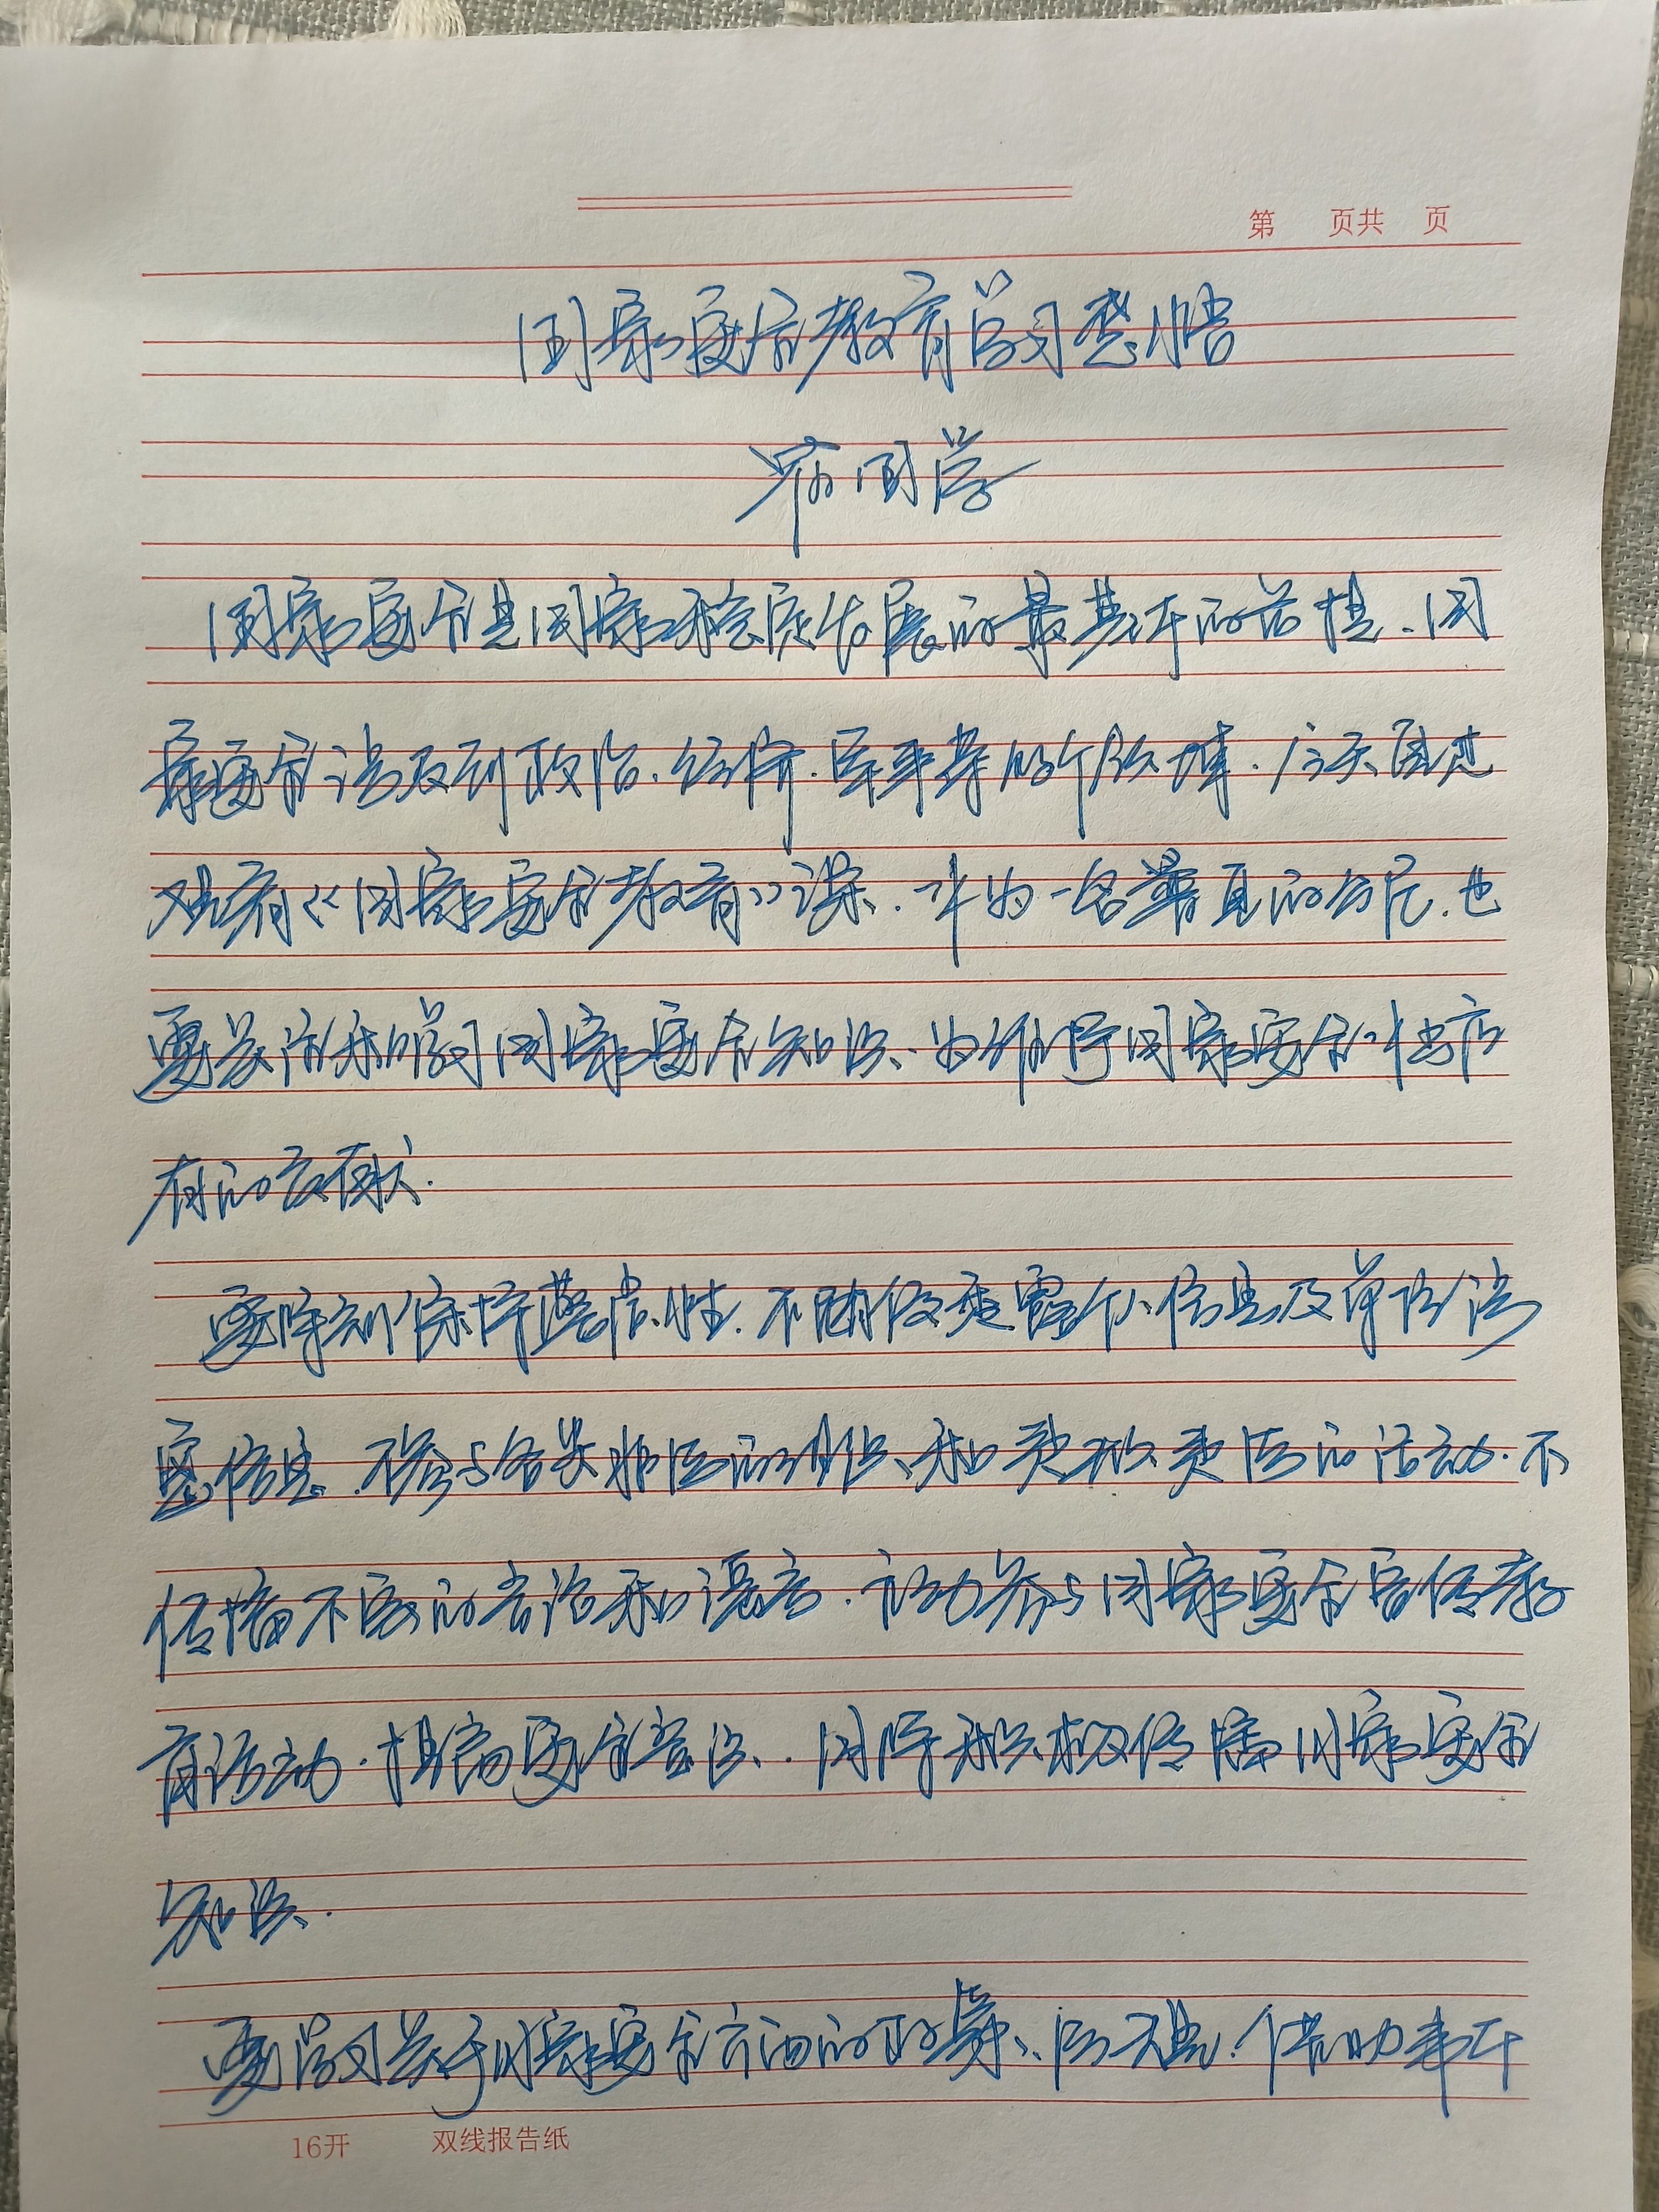 第 页共 页
国家安全教育学习感悟
国学
国家安全是国家稳定发展的最基本的前提、国
家安全涉及到政治、经济、军事等的个领域.今天通过
观看《国家安全教育》课、作为一名普通的公民.也
要关注和学习国家安全知识、为维护国家安全作出应
有的贡献.
要时刻保持警惕性.不随便透露个人信息及单位涉
密信息.不参与各类非法的组织和违规违法的活动.不
传播不实的言论和谣言.主动参与国家安全宣传教
育活动.提高安全意识.同时积极传播国家安全
知识.
要学习关于国家安全方面的政策、法规.
16开 双线报告纸